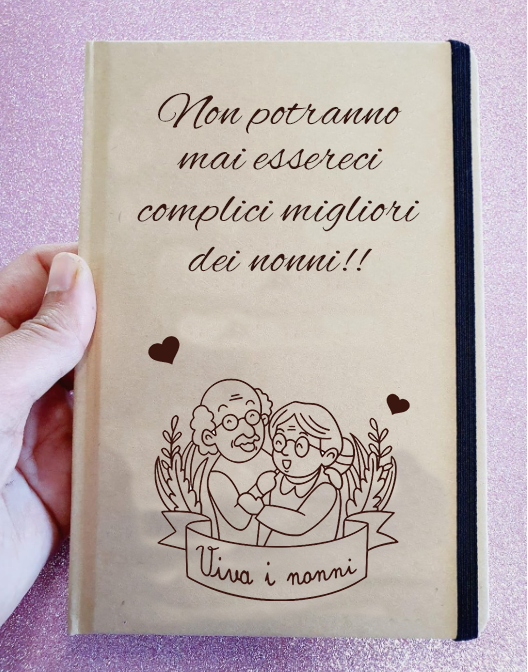 Non potranno
mai essereci
complici migliori
dei nonni!!
Viva i nonni